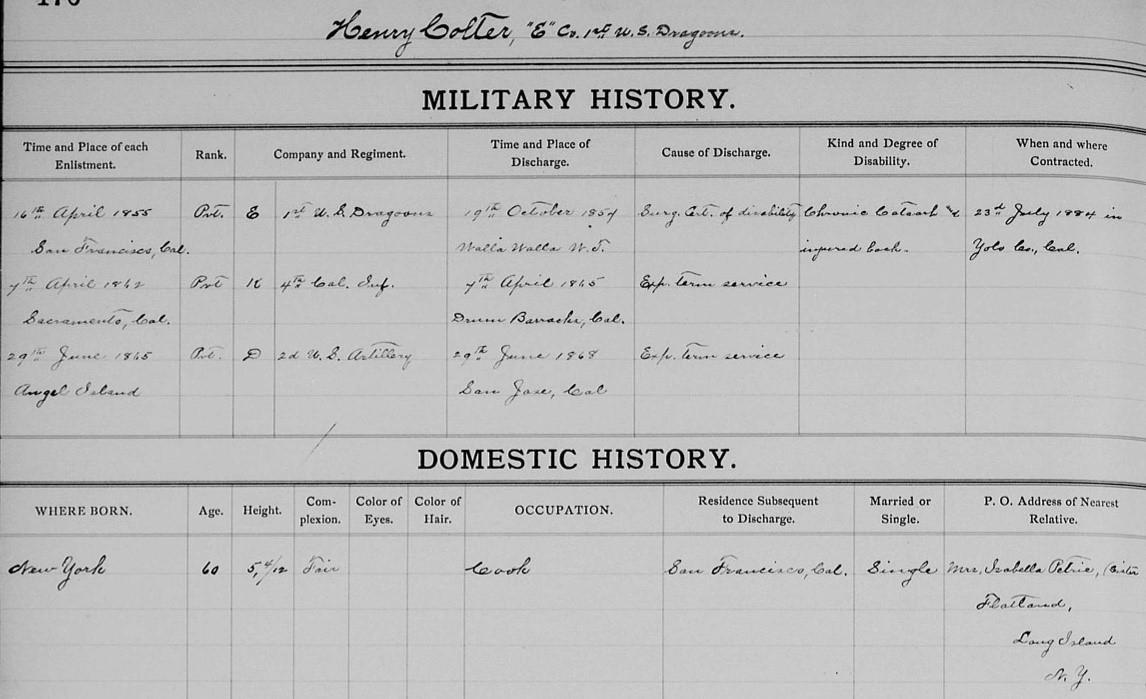 Henry Colter, "E" Co. 1st U.S. Dragoons.
MILITARY HISTORY.
Time and Place of each Enlistment. Rank. Company and Regiment. Time and Place of Discharge. Cause of Discharge. Kind and Degree of Disability. When and where Contracted.
16th April 1855 Pvt. E 1st U.S. Dragoons 19th October 1857 Surg. Cert. of disability Chronic Catarrh & 23d July 1884 in
San Francisco, Cal. Walla Walla W.T. injured back. Yolo Co., Cal.
7th April 1862 Pvt K 4th Cal. Inf. 7th April 1865 Exp. term service
Sacramento, Cal. Drum Barracks, Cal.
29th June 1865 Pvt. D 2d U.S. Artillery 29th June 1868 Exp. term service
Angel Island San Jose, Cal
DOMESTIC HISTORY.
WHERE BORN. Age. Height. Complexion. Color of Eyes. Color of Hair. OCCUPATION. Residence Subsequent to Discharge. Married or Single. P. O. Address of Nearest Relative.
New York 60 5,4/12 Fair Cook San Francisco, Cal. Single Mrs, Isabella Petrie, (Sister
Flatland,
Long Island
N.Y.